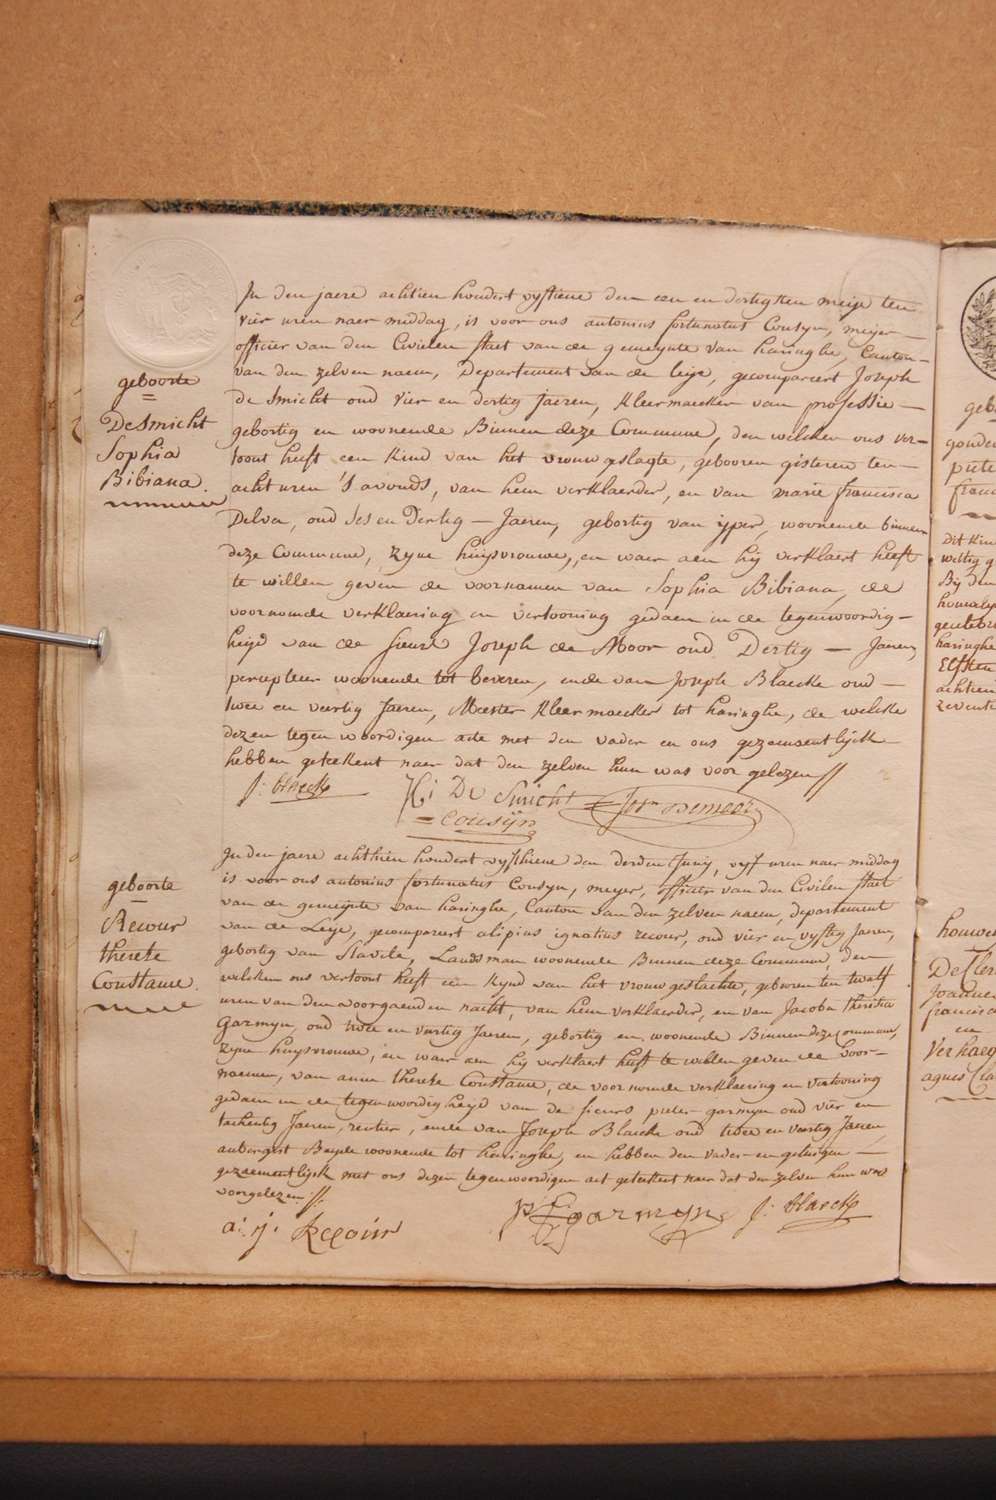 geboorte
=
DeSmicht
Sophia
Bibiana.
In den jaere achtien hondert vyftiene den een en dertigsten meije ten
vier uren naer middag, is voor ons antonius fortunatus Cousyn, meijer
officier van den Civielen staet van de gemeynte van haringhe, Canton
van den zelven naem, Departement van de leije, gecompareert Joseph
de Smicht oud vier en dertig Jaeren, kleermaecker van professie
gebortig en woonende Binnen deze Commune, den welcken ons ver-
toont heeft een kind van het vrouwgeslagte, gebooren gisteren ten
acht uren 's avonds, van hem verklaerder, en van marie francisca
Delva, oud Ses en Dertig Jaeren, gebortig van ijper, woonende binnen
deze Commune, zijne huijsvrouwe, en waer aen hij verklaert heeft
te willen geven de voornamen van Sophia Bibiana, de
voornoemde verklaering en vertooning gedaen in de tegenwoordig-
heijd van de sieurs Joseph de Moor oud Dertig Jaeren,
percepteur woonende tot beveren, ende van Joseph Blaecke oud
twee en veertig Jaeren, Meester kleermaecker tot haringhe, de welcke
dezen tegenwoordigen acte met den vader en ons gezaementlijck
hebben geteekent naer dat den zelven hun was voor gelezen //
J: blaecke
De Smicht
Demoor
Cousijn
geboorte
Recour
therese
Constance.
In den jaere achthien hondert vyfthiene den derden Junij, vyf uren naer middag
is voor ons antonius fortunatus Cousyn, meyer, officier van den Civilen staet
van de gemeijnte van haringhe, Canton van den zelven naem, departement
van de Leije, gecompareert alipius ignatius recour, oud vier en vyftig Jaeren,
gebortig van Stavele, Landsman woonende Binnen deze Commune, den
welcken ons vertoont heeft een kynd van het vrouwgeslachte, geboren ten twelf
uren van den voorgaenden nacht, van hem verklaerder, en van Jacoba theresia
Garmyn, oud twee en veertig Jaeren, gebortig en woonende Binnen deze Commune,
zyne huysvrouwe, en waer aen hij verklaert heeft te willen geven de voor-
naemen, van anne therese Constance, de voornoemde verklaering en vertooning
gedaen in de tegenwoordigheijd van de sieurs pieter garmyn oud vier en
tachentig Jaeren, rentier, ende van Joseph Blaecke oud twee en veertig Jaeren
aubergist Beyde woonende tot haringhe, en hebben den vader en getuigen
gezaementlijck met ons dezen tegenwoordigen act geteekent naer dat den zelven hun was
voorgelezen //.
a: j: Recour
garmyn
J: blaecke
gonde
piete
franc
Dit kin
wettig
Bij den
haringhe
Elfsten
achtien
zevent
houwe
Joannes
francis
en
Verhaeg
agnes